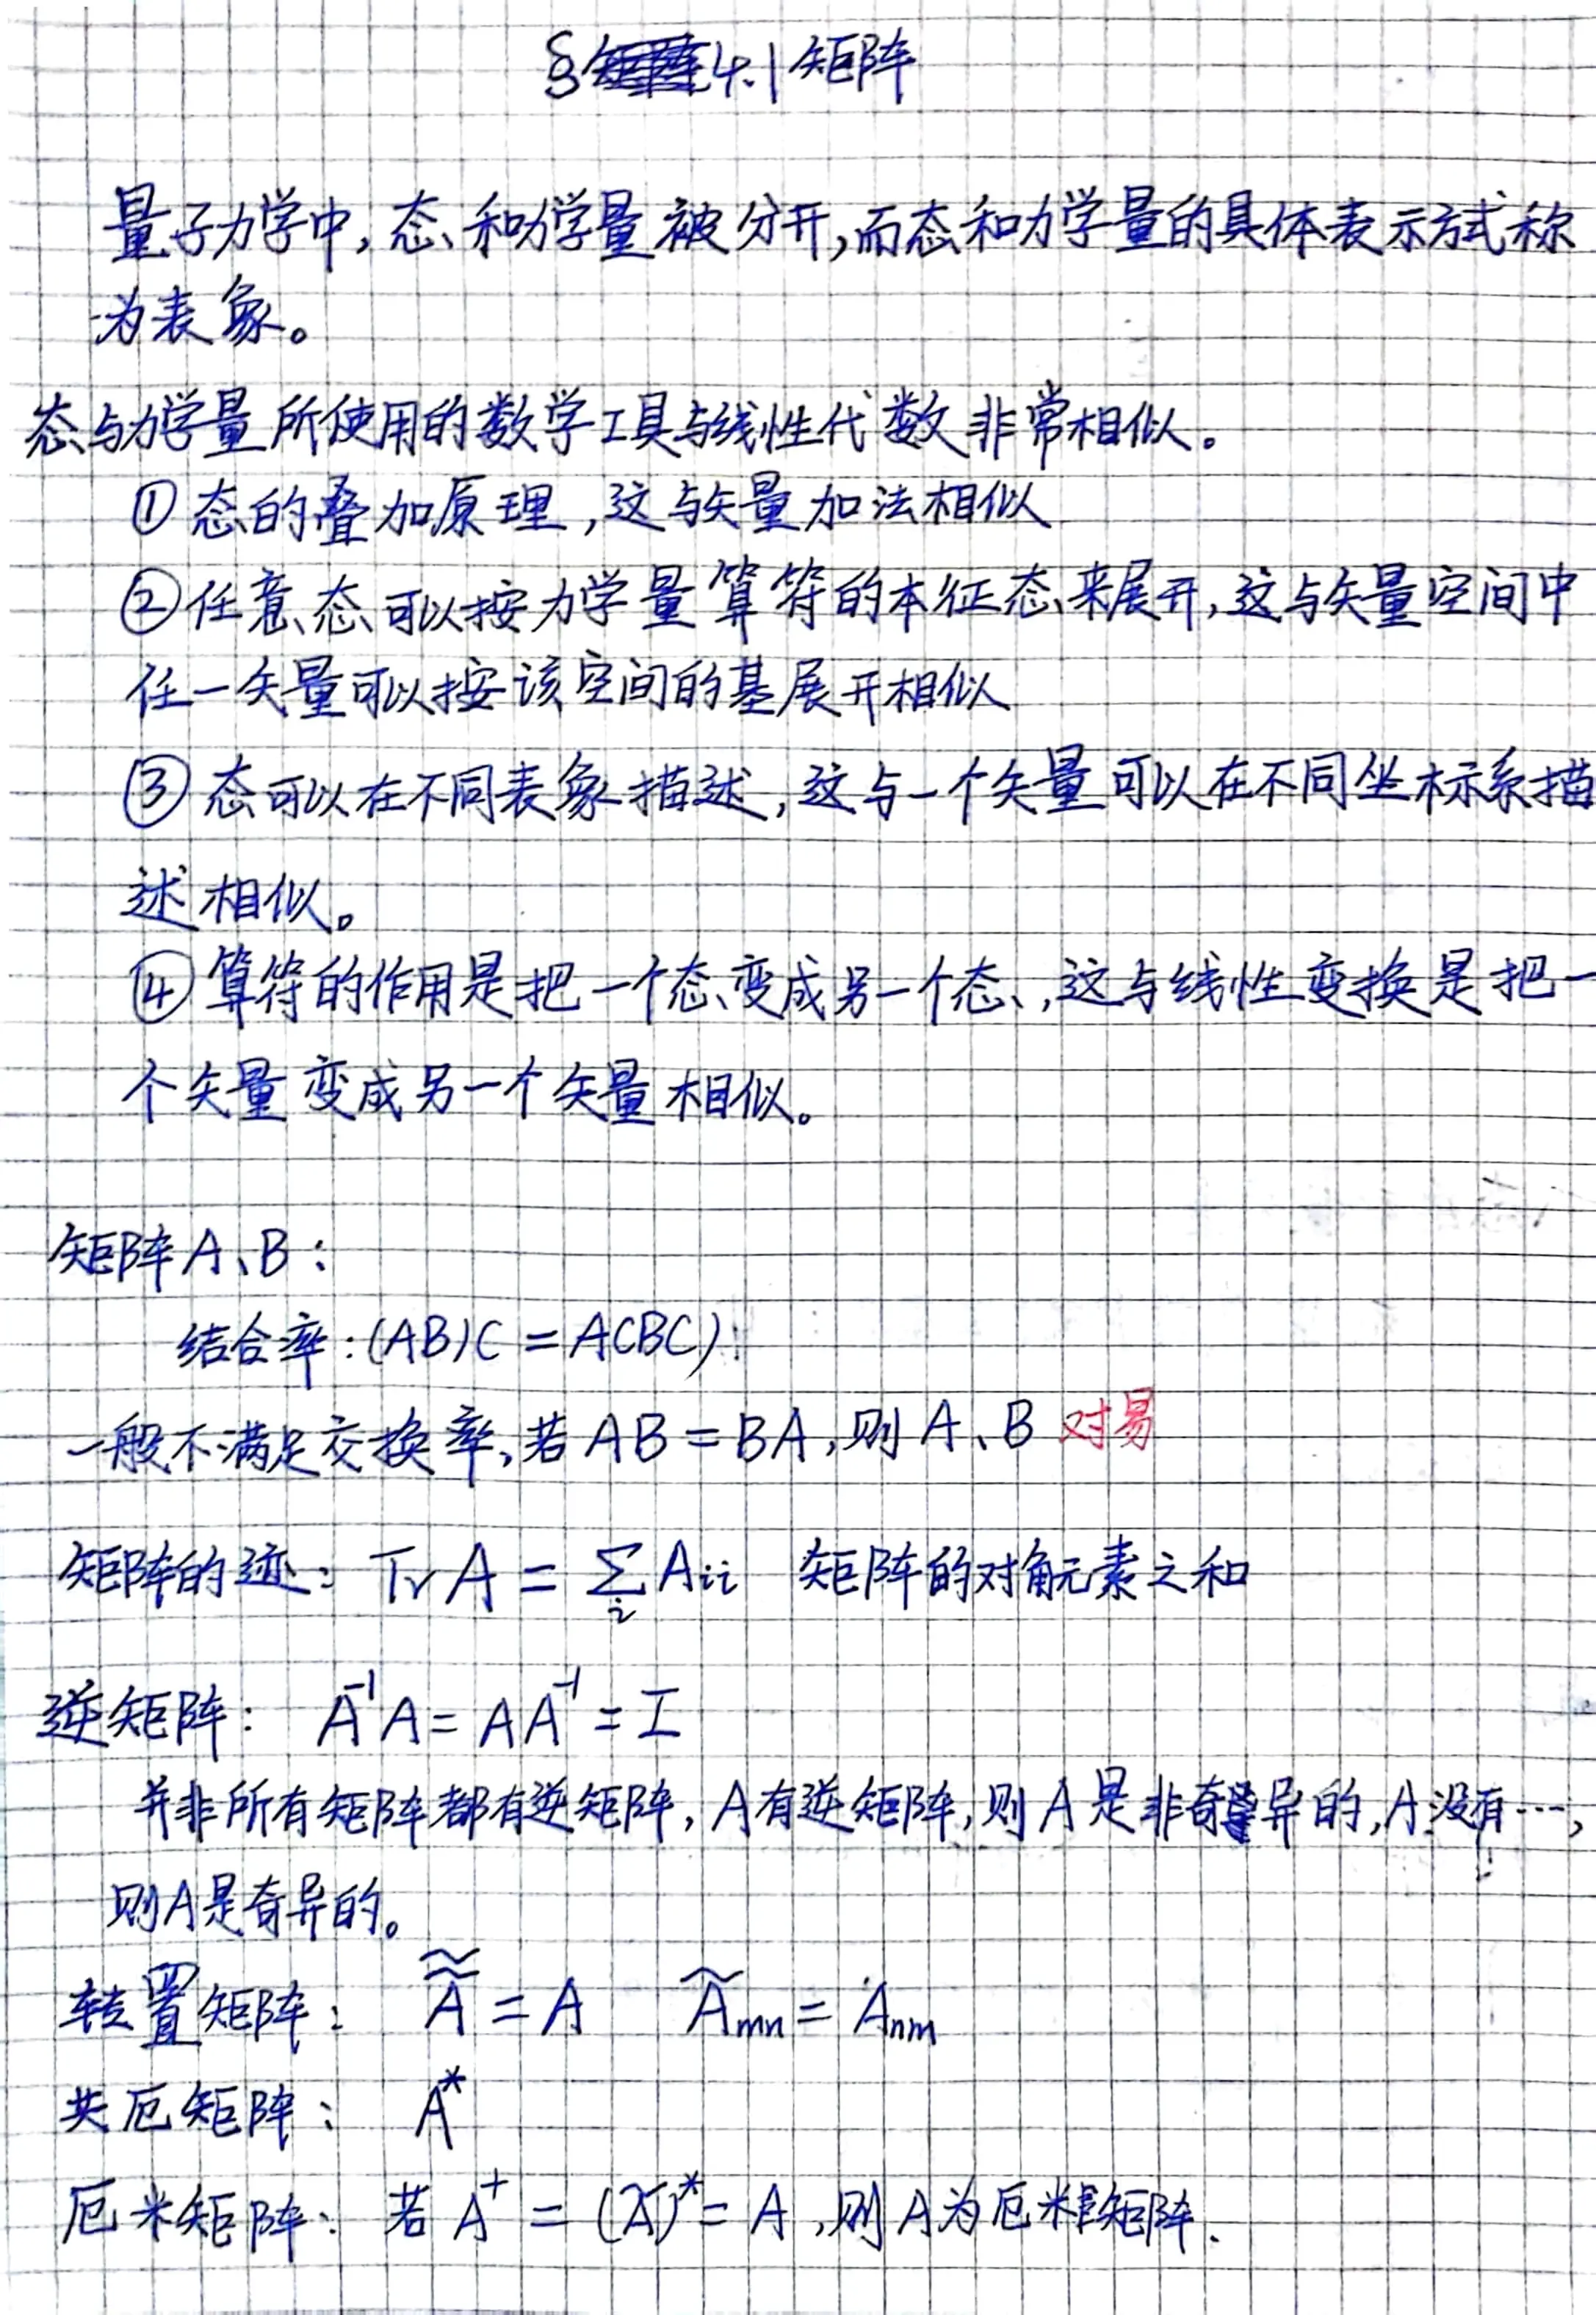 §4.1 矩阵
量子力学中,态和力学量被分开,而态和力学量的具体表示方式称
为表象。
态与力学量所使用的数学工具与线性代数非常相似。
① 态的叠加原理,这与矢量加法相似
② 任意态可以按力学量算符的本征态来展开,这与矢量空间中
任一矢量可以按该空间的基展开相似
③ 态可以在不同表象描述,这与一个矢量可以在不同坐标系描
述相似。
④ 算符的作用是把一个态变成另一个态,这与线性变换是把一
个矢量变成另一个矢量相似。
矩阵A、B:
结合率:(AB)C = A(BC)
一般不满足交换率,若 AB = BA,则 A、B 对易
矩阵的迹: Tr A = ∑_i A_ii 矩阵的对角元素之和
逆矩阵: A⁻¹A = AA⁻¹ = I
并非所有矩阵都有逆矩阵,A有逆矩阵,则A是非奇异的,A没有…,
则A是奇异的。
转置矩阵: Ã̃ = A Ã_mn = A_nm
共厄矩阵: A*
厄米矩阵: 若 A⁺ = (Ã)* = A,则A为厄米矩阵.